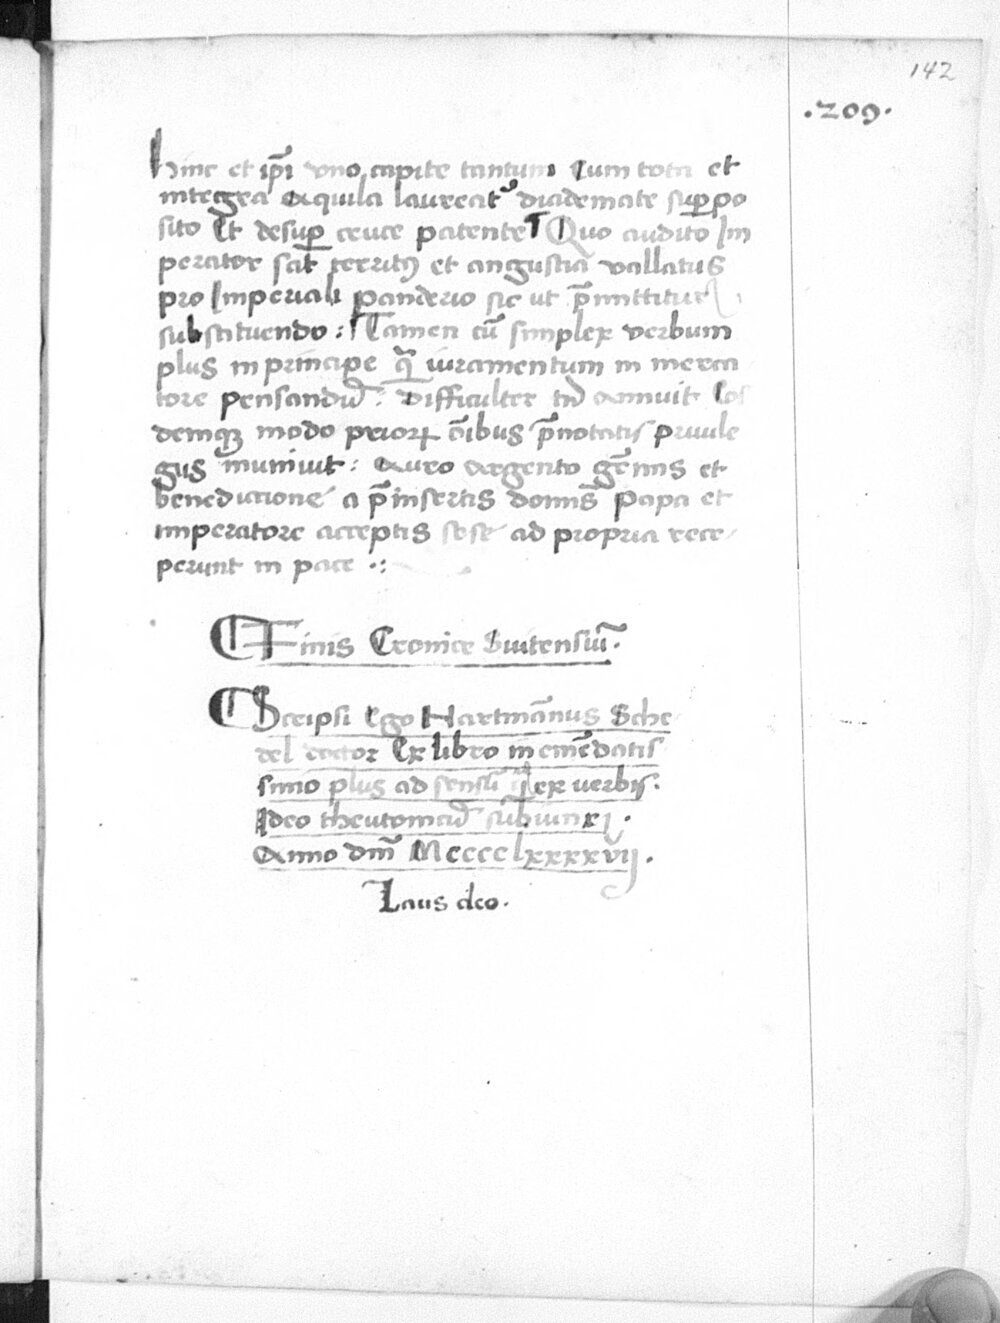 142
.209.
hinc et ip̄i vno capite tantum Cum tota et
integra Aquila laureat᷒ diademate sup̱po
sito Et desup̱ cruce patente Quo audito Im
perator sat territ᷒ et angustia vallatus
pro Imperiali panderio sic ut p̄mittitur
substituendo : Tamen cū simplex verbum
plus in principe q̄ iuramentum in merca
tore pensandū : difficulter tn̄ annuit Eos
demqꝫ modo prioꝝ oībus p̄notatis priuile
gijs muniuit : Auro Argento gēmis et
benedictione a p̄insertis domīs Papa et
imperatore acceptis sese ad propria rece
perunt in pace .:
Finis Cronice Suitensiū.
Scripsi Ego Hartmānus Sche
del doctor Ex libro in emēdatis
simo plus ad sensū q̄ ex verbis:
Ideo theutonicā subiunxi .
Anno dm̄ Mcccclxxxxvij .
Laus deo.